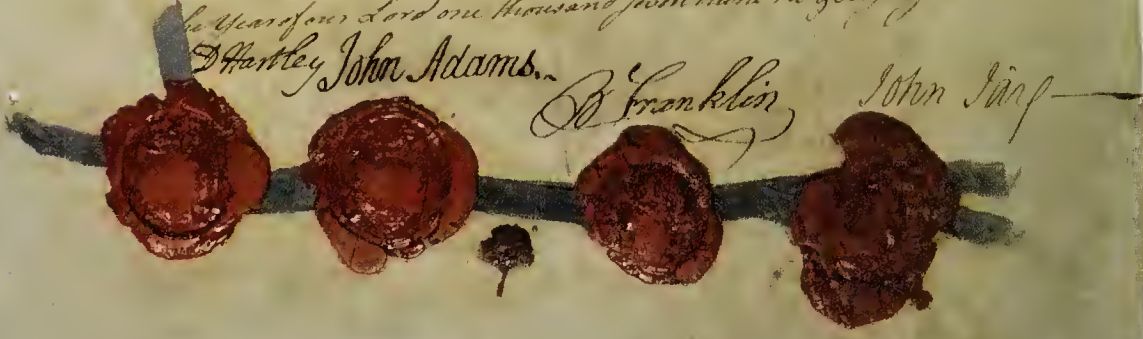 the Year of our Lord one thousand seven hund
D Hartley John Adams. B Franklin John Jay